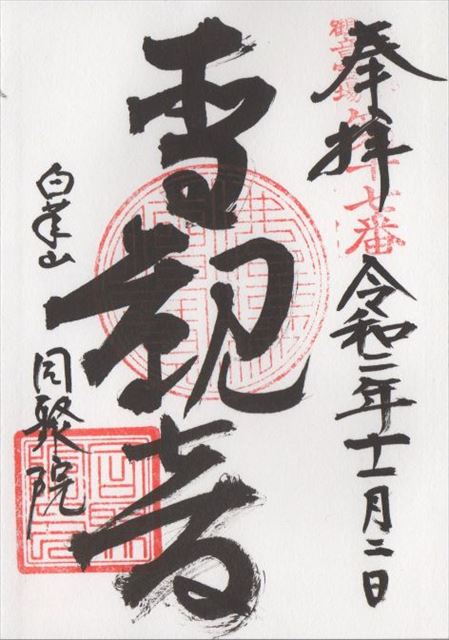 奉拝
観音霊場
第十七番
令和二年十一月二日
観音
白華山
同聚院